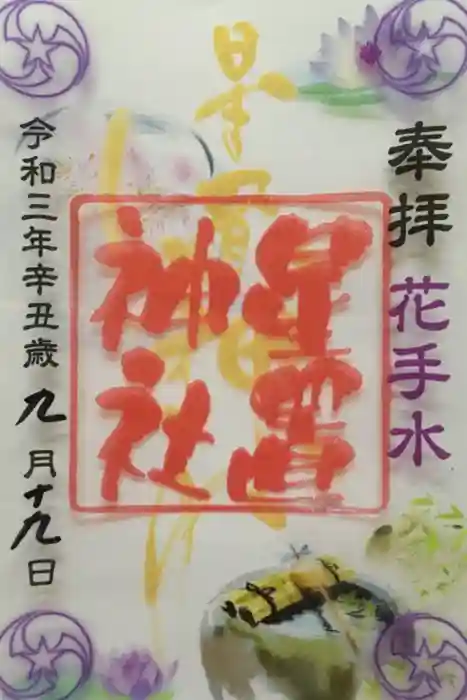 奉拝 花手水
星置
神社
令和三年辛丑歳 九月十九日